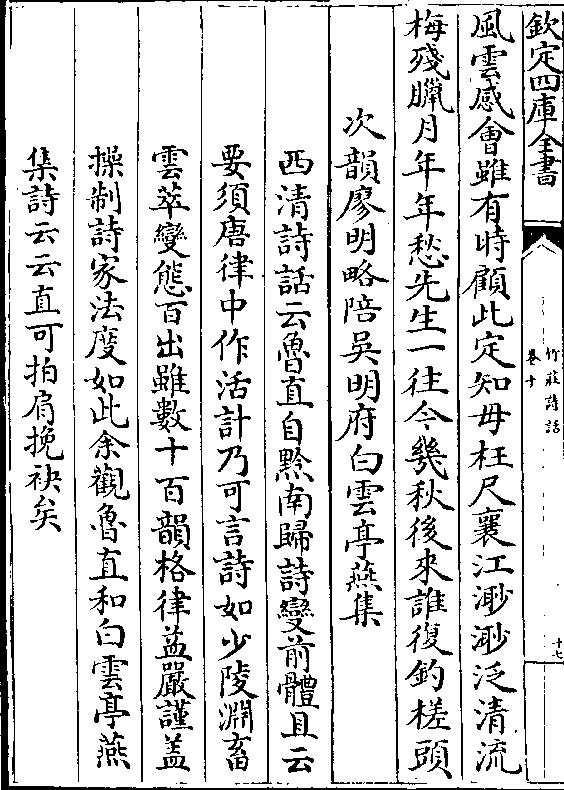 欽定四庫全書
竹莊詩話
卷十
十七
風雲感會雖有時顧此定知毋枉尺襄江渺渺泛清流
梅殘臘月年年愁先生一往今幾秋後來誰復釣槎頭
次韻廖明略陪吳明府白雲亭燕集
西清詩話云魯直自黔南歸詩變前體且云
要須唐律中作活計乃可言詩如少陵淵畜
雲萃變態百出雖數十百韻格律益嚴謹盖
操制詩家法度如此余觀魯直和白雲亭燕
集詩云云直可拍肩挽袂矣